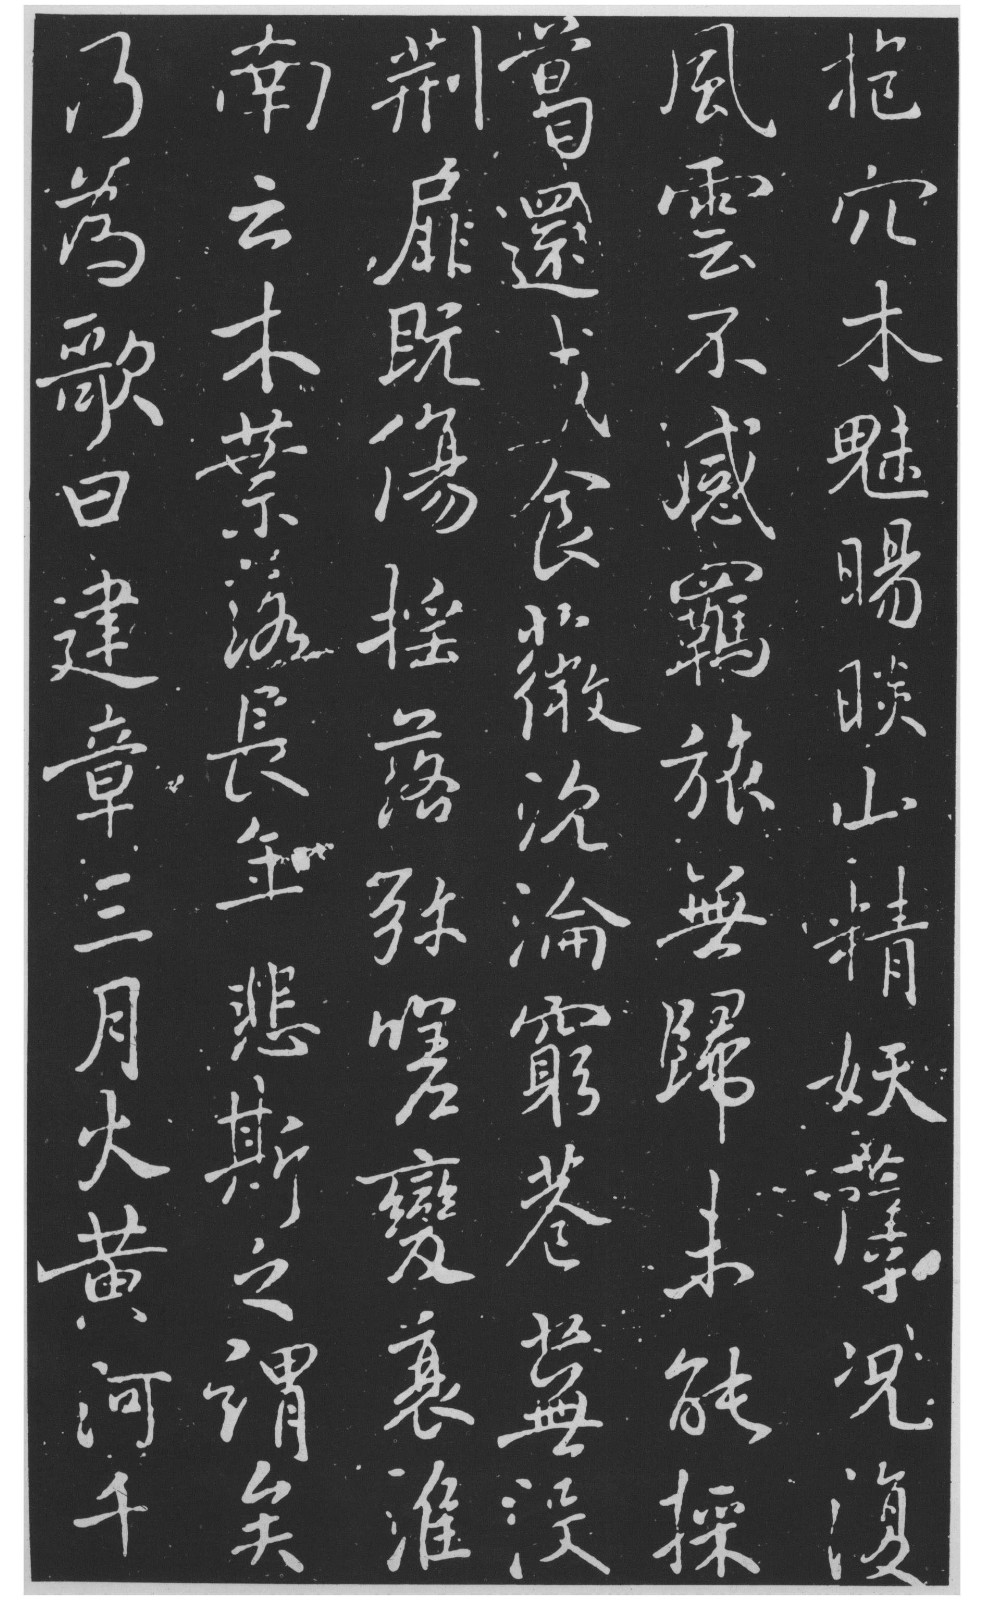 抱穴木魅賜睒山精妖孽况復
風雲不感羈旅無歸未能採
葛還成食薇沉淪窮巷蕪没
荆扉既傷揺落弥嗟變衰淮
南云木葉落長年悲斯之謂矣
乃為歌曰建章三月火黄河千